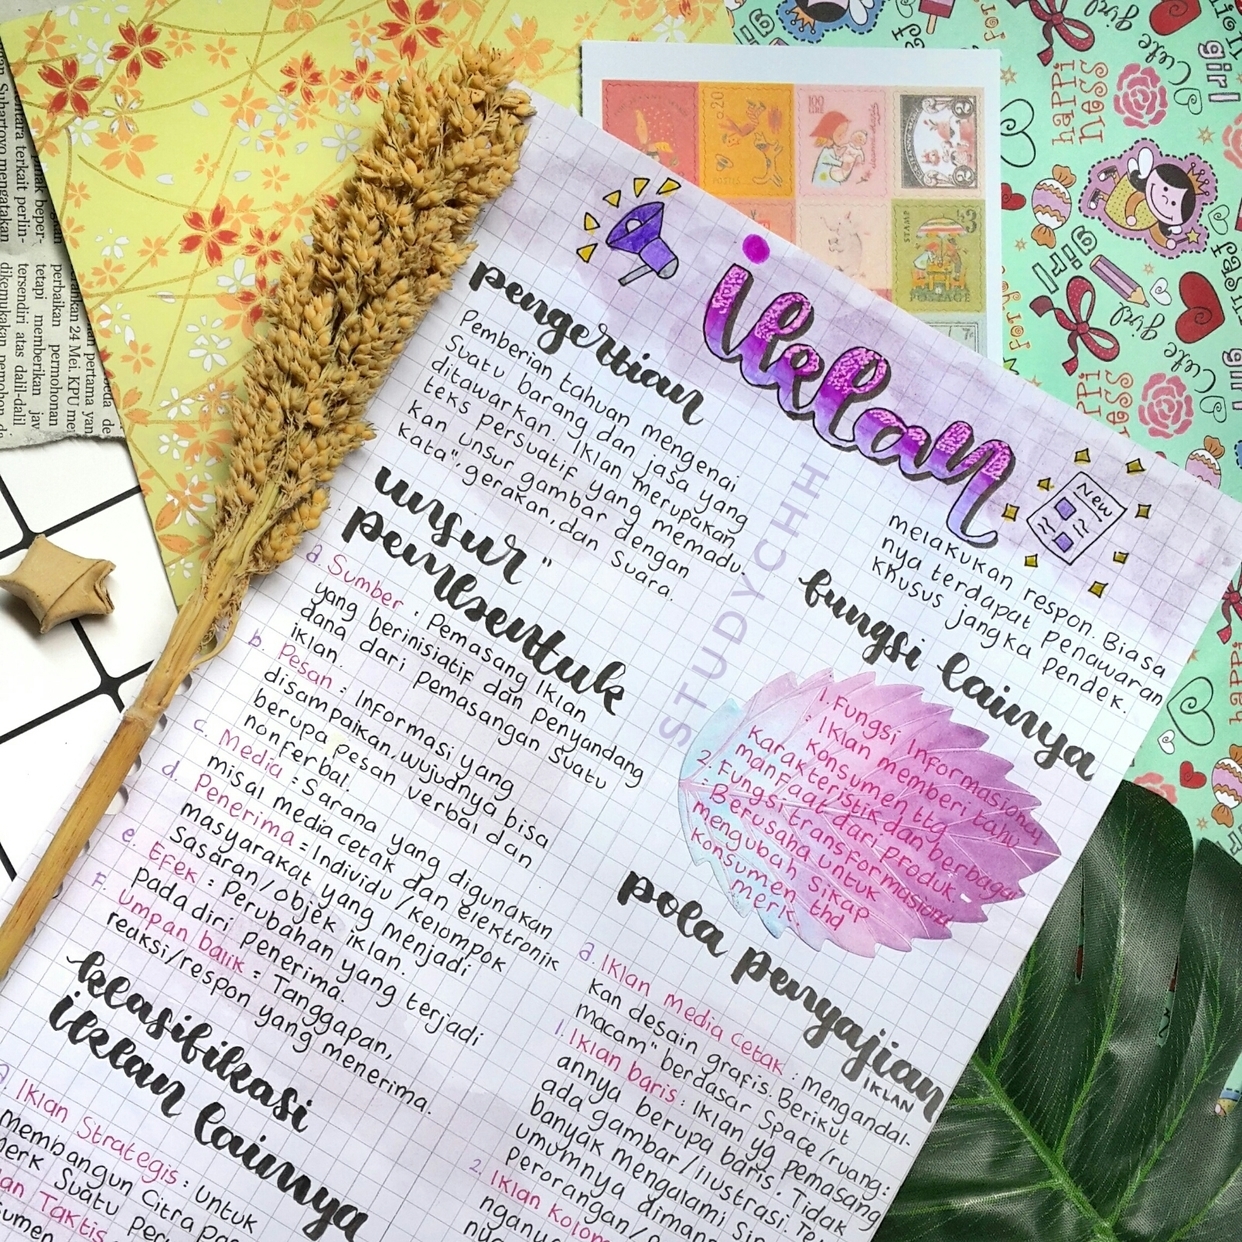 iklan
New
pengertian
Pemberian tahuan mengenai
Suatu barang dan jasa yang
ditawarkan. Iklan merupakan
teks persuatif yang memadu
kan unsur gambar dengan
kata", gerakan, dan Suara.
unsur"
pembentuk
a. Sumber : Pemasang Iklan
yang berinisiatif dan penyandang
dana dari pemasangan Suatu
iklan.
b. Pesan : Informasi yang
disampaikan, wujudnya bisa
berupa pesan verbal dan
nonferbal.
c. Media : Sarana yang digunakan
misal media cetak dan elektronik
d. Penerima = Individu / kelompok
masyarakat yang menjadi
Sasaran / objek iklan.
e. Efek : Perubahan yang terjadi
pada diri penerima.
F. Umpan balik = Tanggapan,
reaksi/respon yang menerima.
klasifikasi
iklan lainnya
a. Iklan Strategis : untuk
membangun Citra
merk Suatu
Taktis
melakukan respon. Biasa
nya terdapat penawaran
Khusus jangka pendek.
fungsi lainnya
1. Fungsi Informasional
: Iklan memberi tahu
konsumen ttg
karakteristik dan berbagai
manfaat dari produk.
2. Fungsi transformasional
: Berusaha untuk
mengubah Sikap
Konsumen thd
merk.
pola penyajian
IKLAN
a. Iklan media cetak : mengandal-
kan desain grafis. Berikut
macam" berdasar Space/ruang:
1. Iklan baris : Iklan yg pemasang
annya berupa baris. Tidak
ada gambar/ilustrasi.
banyak mengalami
umumnya
perorangan/
2. Iklan
STUDYCHH
happi
ness
Cute girl
girl
STAMP
POSTAGE
24 Mei, KPU
perbaikan permohonan
tetapi memberikan
tersendiri atas dalil-dalil
dikemukakan pemohon